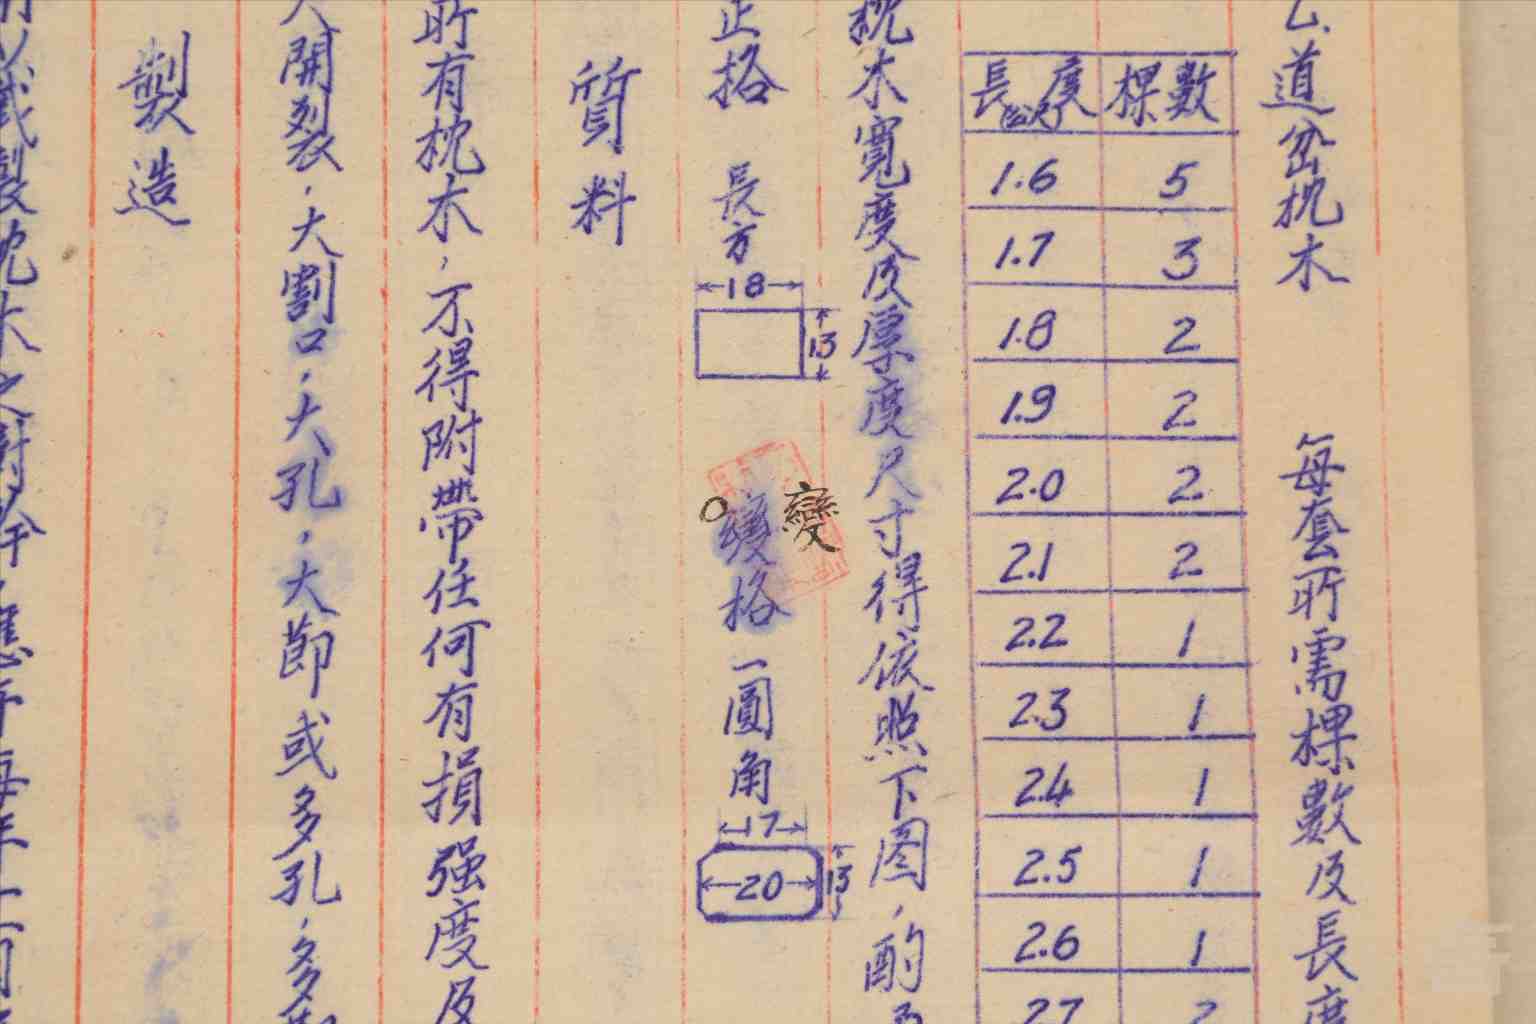 道岔枕木 每套所需棵數及長度
長度 公尺 棵數
1.6 5
1.7 3
1.8 2
1.9 2
2.0 2
2.1 2
2.2 1
2.3 1
2.4 1
2.5 1
2.6 1
2.7 2
枕木寬度及厚度尺寸得依照下圖，酌
正格 長方 變格 一圓角
18
13
變
17
20
13
質料
所有枕木，不得附帶任何有損强度及
開裂，大割口，大孔，大節或多孔，多
製造
製枕木之